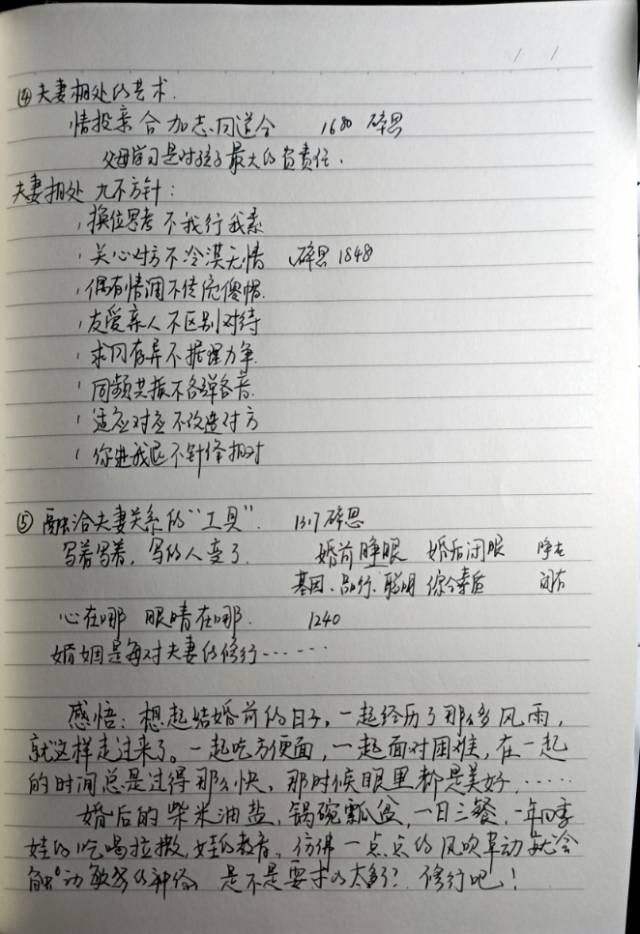 ④夫妻相处的艺术.
情投意合加志同道合 1680 碎思
父母学习是对孩子最大的负责任.
夫妻相处 九不方针:
换位思考 不我行我素
关心对方不冷漠无情 碎思1848
偶有情调不传宽傻帽.
友爱亲人不区别对待
求同存异不据理力争.
同频共振不各弹各音.
适应对应不改造对方
你进我退不针锋相对
⑤融洽夫妻关系的“工具”. 1317碎思
写着写着,写的人变了. 婚前睁眼 婚后闭眼 睁左
基因、品行、聪明 综合素质 闭右
心在哪 眼睛在哪. 1240
婚姻是每对夫妻的修行……
感悟:想起结婚前的日子,一起经历了那么多风雨,
就这样走过来了。一起吃方便面,一起面对困难,在一起
的时间总是过得那么快,那时候眼里都是美好,……
婚后的柴米油盐,锅碗瓢盆,一日三餐,一年四季
娃的吃喝拉撒,娃的教育,仿佛一点点的风吹草动就会
触动敏感的神经 是不是要求的太多了?修行吧!